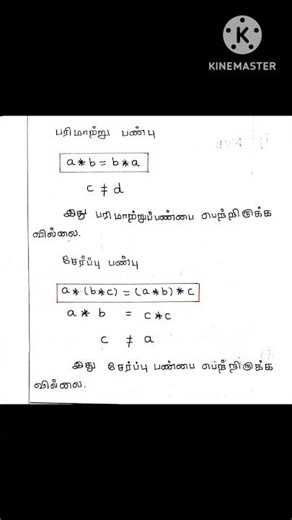 KINEMASTER
பரிமாற்று பண்பு
a * b = b * a
c ≠ d
இது பரிமாற்றுப்பண்பை பெற்றிருக்க
வில்லை.
சேர்ப்பு பண்பு
a * (b * c) = (a * b) * c
a * b = c * c
c ≠ a
இது சேர்ப்பு பண்பை பெற்றிருக்க
வில்லை.